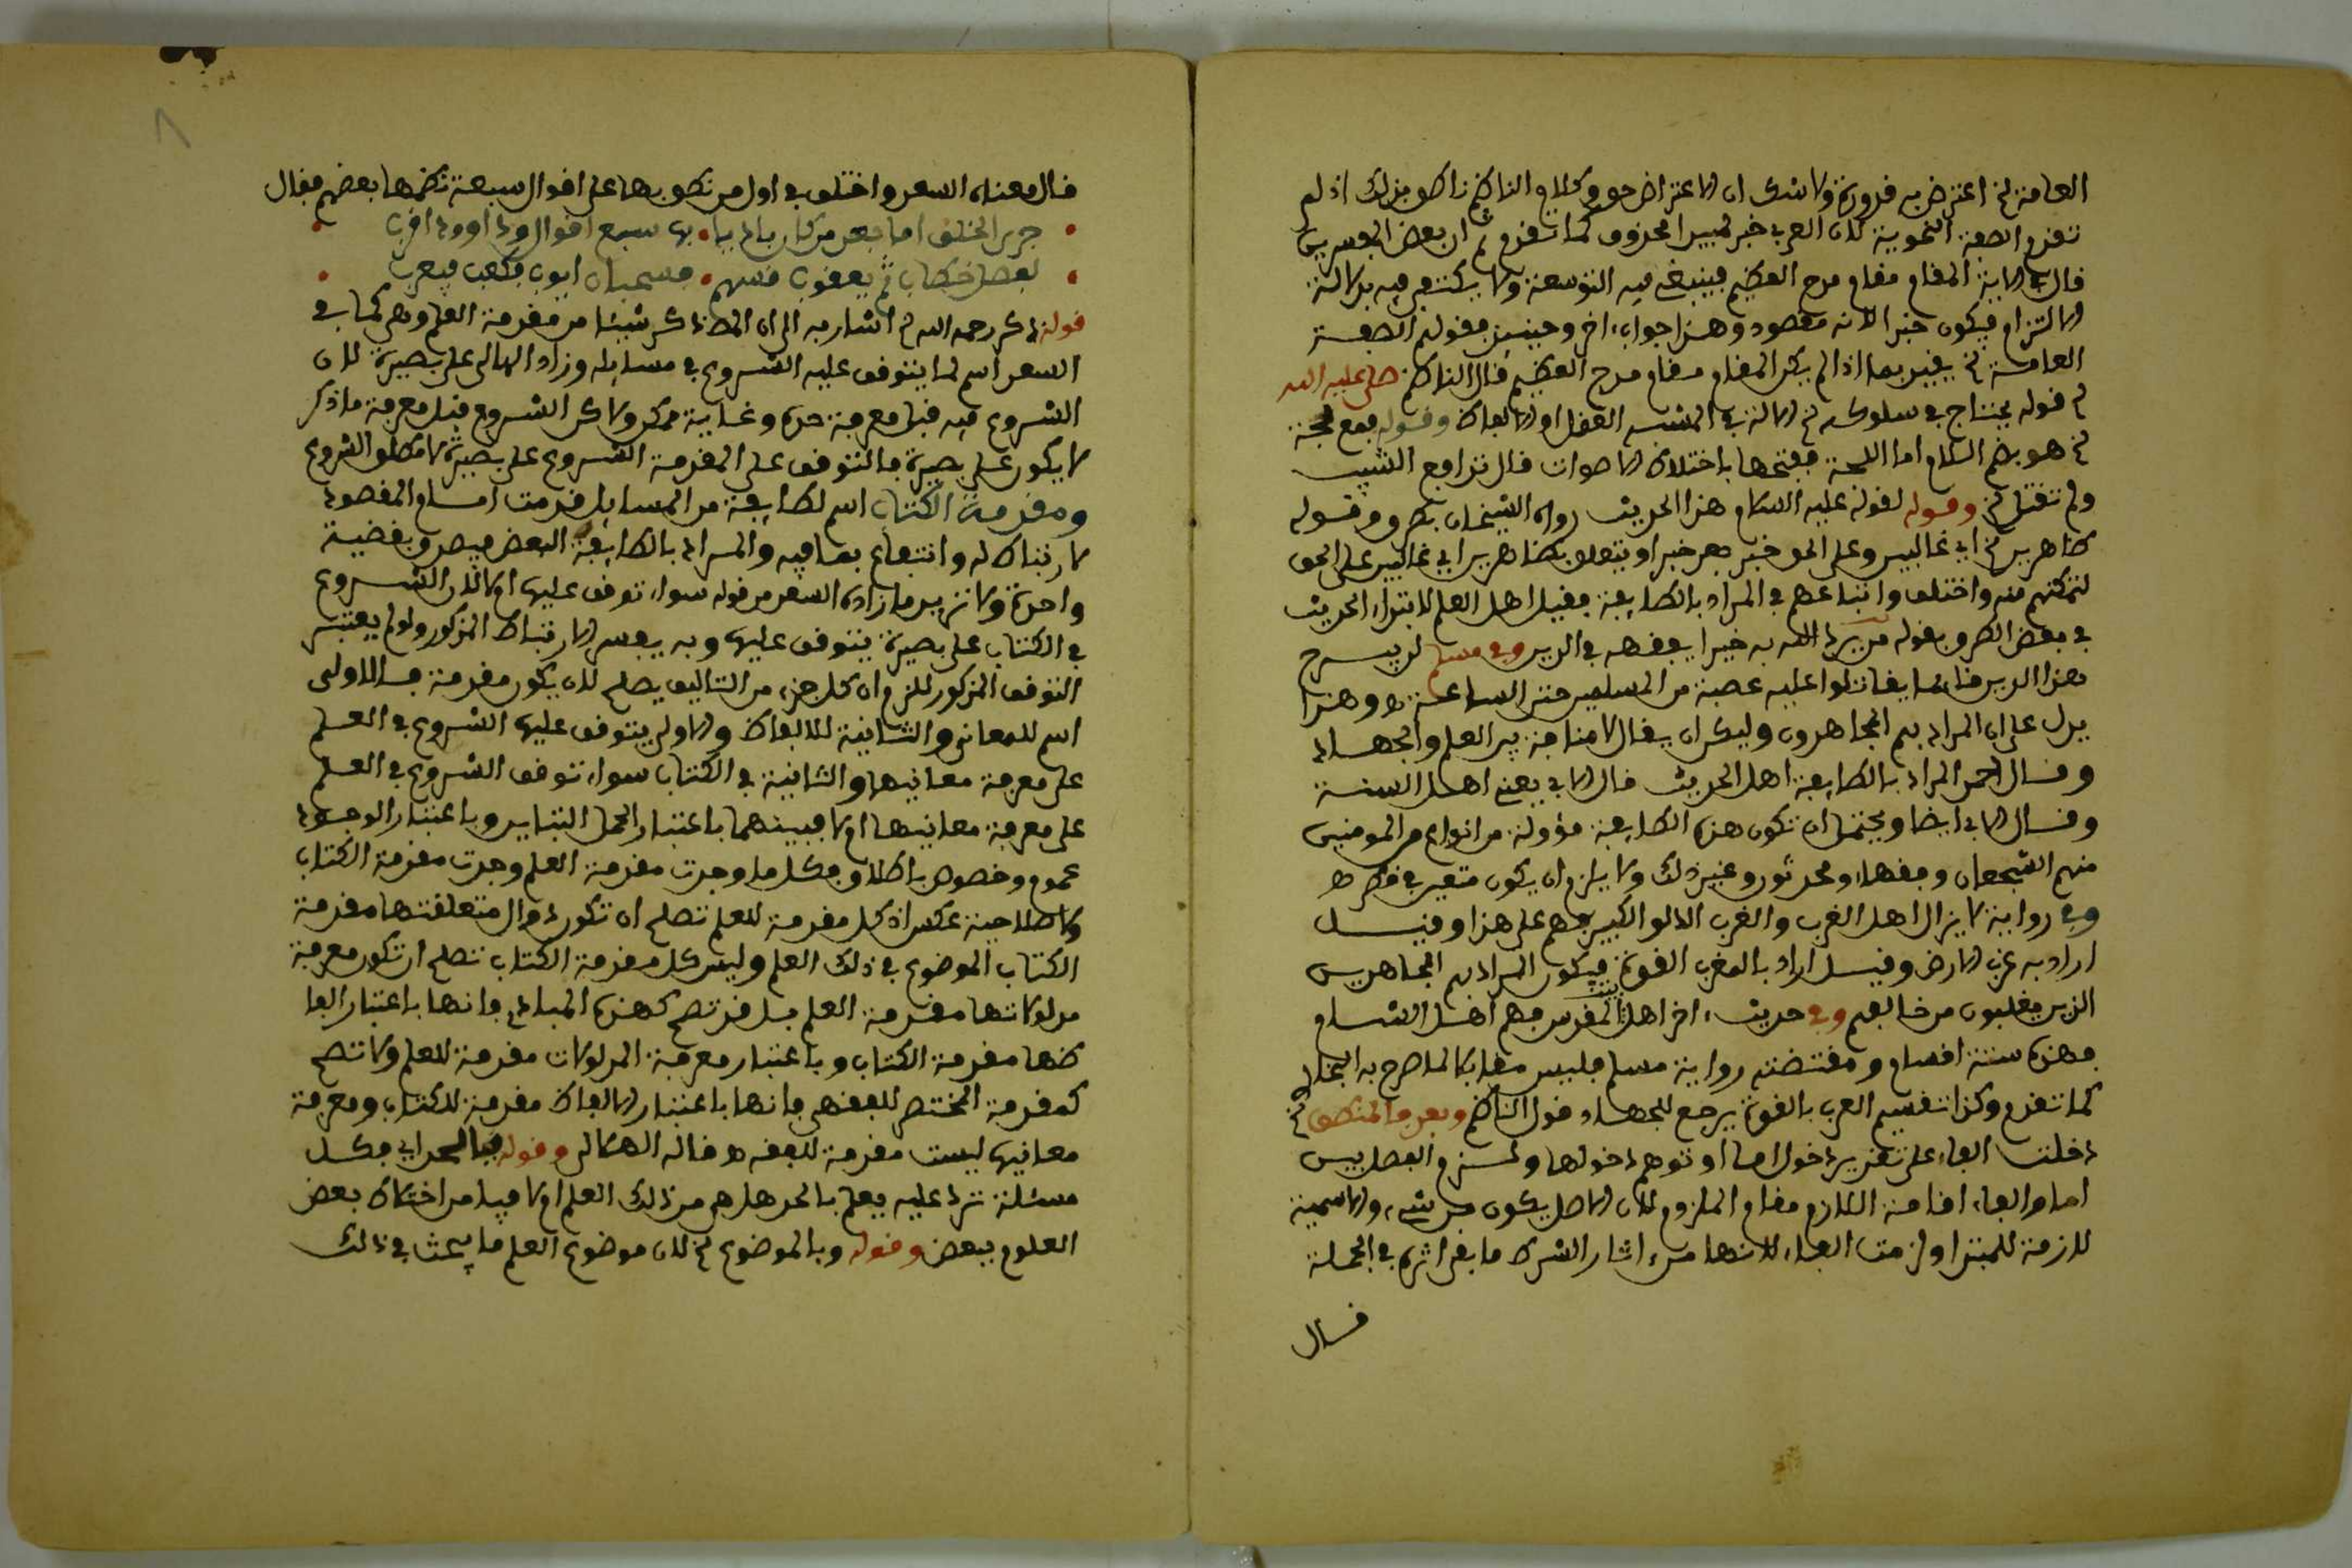 العامة الخ اعترض به قدورة ولا شك ان الاعتراض حق وكلام الناظم ناطق بذلك اذ لم
تقدم الصفة النحوية لان العرب خبر لمبتدا محذوف كما تقدم ثم ان بعض المدرسين
قال الاية المقام مقام مدح العظيم فينبغي فيه التوسعة ولا يكتفى فيه بدلالة
الالتزام فيكون خبرا لانه مقصود وهذا جواب اخر وحينئذ فقولهم الصفة
العامة الخ يقيد بما اذا لم يكن المقام مقام مدح العظيم قال الناظم صلى عليه الله
الخ قوله يحتاج في سلوكه الخ الالة في المشبه العقل او الالفاظ وقوله جمع لجة
الخ هو بضم اللام اما اللجة بفتحها باختلاط الاصوات قال تدافع الشيب
ولم تقتل الخ وقوله لقوله عليه السلام هذا الحديث رواه الشيخان بطرق وقوله
ظاهرين الخ اي غالبين وعلى الحق خبر بعد خبر او يتعلق بظاهرين اي غالبين على الحق
لتمكنهم منه واختلف واتباعهم في المراد بالطايفة فقيل اهل العلم لابتداء الحديث
في بعض الطرق بقوله من يرد الله به خيرا يفقهه في الدين وفي مسلم لن يبرح
هذا الدين قايما يقاتلوا عليه عصبة من المسلمين حتى الساعة اهـ وهذا
يدل على ان المراد بهم المجاهدون وليكن ان يقال لا منافاة بين العلم والجهاد
وقال احمد المراد بالطايفة اهل الحديث قال الابي يعني اهل السنة
وقال الابي ايضا ويحتمل ان تكون هذه الطايفة مؤولة من انواع من المومنين
منهم الشجعان وفقهاء ومحدثون وغير ذلك ولا يلزم ان يكون متعين في قطر اهـ
وفي رواية لا يزال اهل الغرب والغرب الدلو الكبير فهم على هذا وقيل
اراد به غرب الارض وقيل اراد بالغرب القوة فيكون المراد بهم المجاهدين
الذين يغلبون من خالفهم وفي حديث اخر اهل بيت المقدس فهم اهل الشام
فهذه ستة اقسام ومقتضى رواية مسلم فليس مقابلا لما صرح به البخاري
كما تقدم وكذا تفسير الغرب بالقوة يرجع للجهاد قول الناظم وبعد فالمنطق الخ
دخلت الفاء على تقدير دخول اما او توهم دخولها ولزم الفصل بين
اما والفاء اقامة اللازم مقام الملزوم لان الاصل يكون من شيء والاسمية
لازمة للمبتدا ولزمت الفاء لانها من اثار الشرط ما بقي اثره في الجملة
قال
قال معناه السعد واختلف في اول من نطق بها على اقوال سبعة نظمها بعضهم فقال
جرى الخلف اما بعد من كان باديا • بها سبع اقوال وداوود اقرب
لفصل خطاب ثم يعقوب قسهم • فسحبان ايوب فكعب فيعرب
قوله ذكر رحمه الله الخ اشار به الى ان المص ذكر شيئا من مقدمة العلم وهي كما في
السعد اسم لما يتوقف عليه الشروع في مسايله وزاد الهلالي على بصيرة لان
الشروع فيه قبل معرفة حده وغاية ممكن ولاكن الشروع قبل معرفة ما ذكر
لا يكون على بصيرة فالمتوقف على المقدمة الشروع على بصيرة لا مطلق الشروع
ومقدمة الكتاب اسم لطايفة من المسايل قدمت امام المقصود
لارتباط له وانتفاع بها فيه والمراد بالطايفة البعض فيصدق بقضية
واحدة ولا تزيد ما زاده السعد من قوله سواء توقف عليها ام لا لان الشروع
في الكتاب على بصيرة يتوقف عليها وبه يفسر الارتباط المذكور ولو لم يعتبر
التوقف المذكور للزم ان كل جزء من التاليف يصلح لان يكون مقدمة فالاولى
اسم للمعاني والثانية للالفاظ والاولى يتوقف عليها الشروع في العلم
على معرفة معانيها والثانية في الكتاب سواء توقف الشروع في العلم
على معرفة معانيها ام لا فبينهما باعتبار الحمل التباين وباعتبار الوجود
عموم وخصوص باطلاق فكل ما وجدت مقدمة العلم وجدت مقدمة الكتاب
ولا صلاحية عكس اذ كل مقدمة للعلم تصلح ان تكون دوال متعلقتها مقدمة
الكتاب الموضوع في ذلك العلم وليس كل مقدمة الكتاب تصلح ان تكون معرفة
مدلولاتها مقدمة العلم بل قد تصح كهذه المبادي فانها باعتبار الفا
ظها مقدمة الكتاب وباعتبار معرفة المدلولات مقدمة للعلم ولا تصح
كمقدمة المختصر للفقهي فانها باعتبار الالفاظ مقدمة للكتاب ومعرفة
معانيها ليست مقدمة للفقه اهـ قاله الهلالي وقوله فبالحد اي فكل
مسئلة ترد عليه يعلم بالحد هل هي من ذلك العلم ام لا فيامن اختلاط بعض
العلوم ببعض وقوله وبالموضوع الخ لان موضوع العلم ما يبحث في ذلك